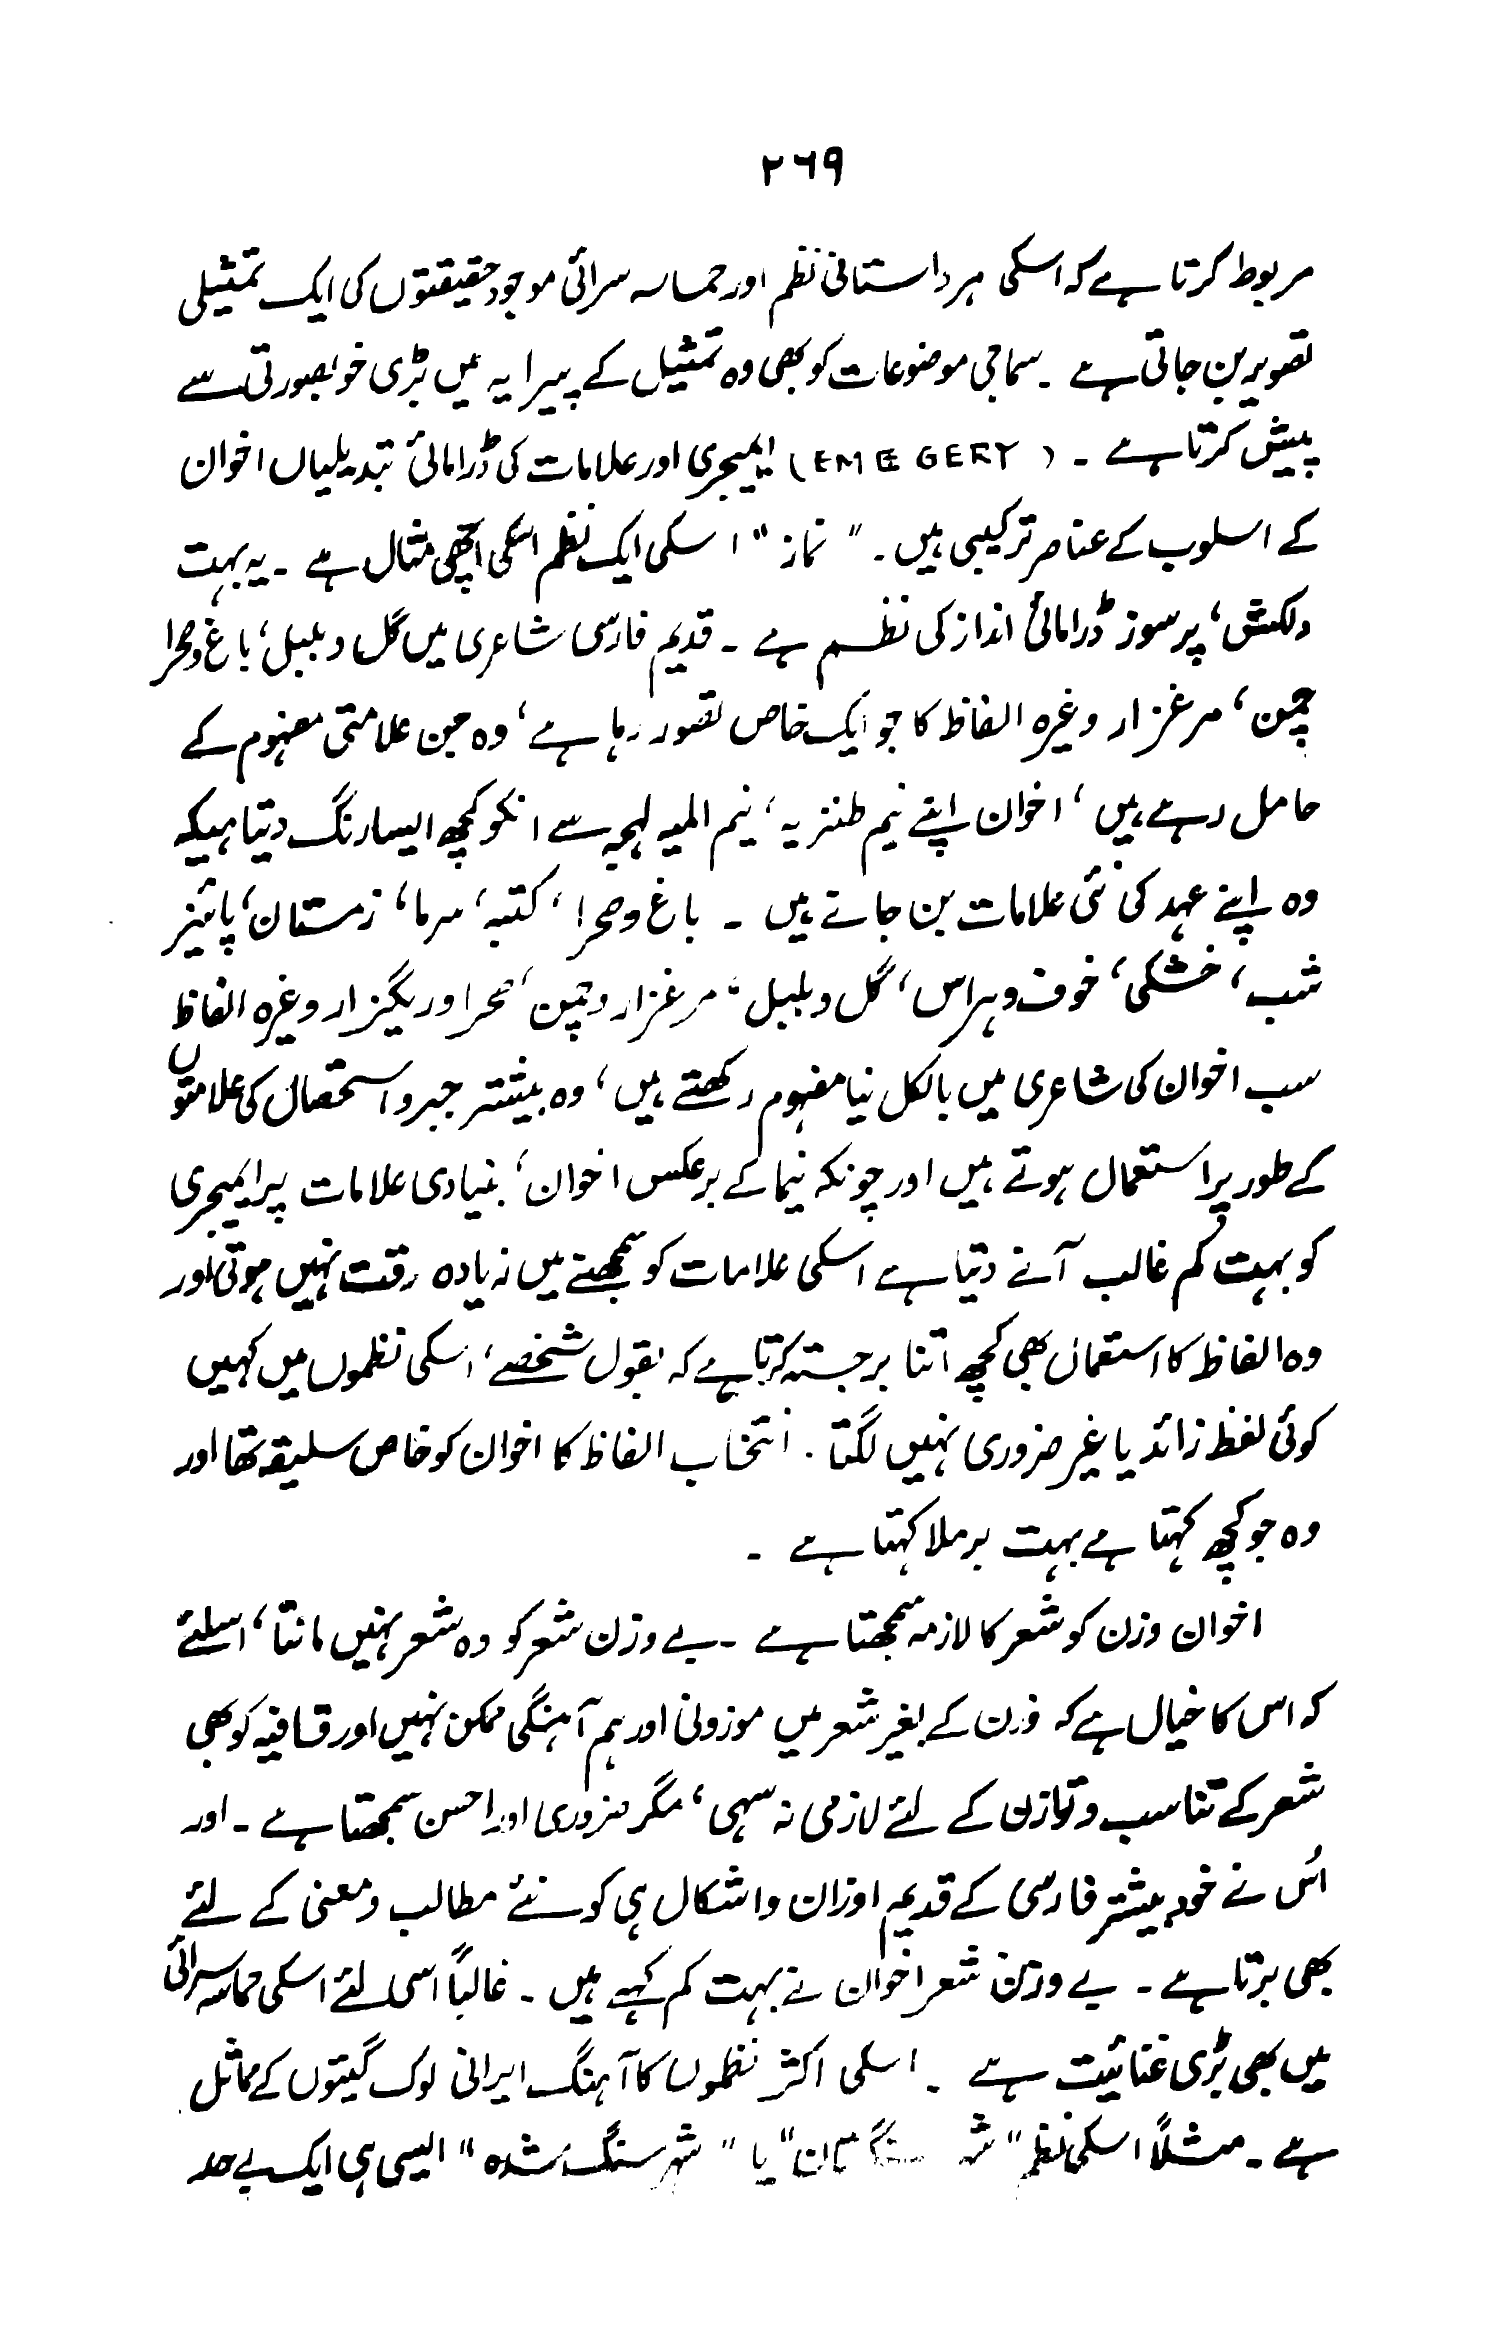 ۲۶۹
مربوط کرتا ہے کہ اسکی ہر داستانی نظم اور حماسہ سرائی موجود حقیقتوں کی ایک تمثیلی
تصویر بن جاتی ہے ۔ سماجی موضوعات کو بھی وہ تمثیل کے پیرایہ میں بڑی خوبصورتی سے
پیش کرتا ہے ۔ (EMEGERY) ایمیجری اور علامات کی ڈرامائی تبدیلیاں اخوان
کے اسلوب کے عناصر ترکیبی ہیں ۔ " نماز " اسکی ایک نظم اسکی اچھی مثال ہے ۔ یہ بہت
دلکش، پرسوز ڈرامائی انداز کی نظم ہے ۔ قدیم فارسی شاعری میں گل و بلبل، باغ و صحرا
چمن، مرغزار وغیرہ الفاظ کا جو ایک خاص تصور رہا ہے، وہ جن علامتی مفہوم کے
حامل رہے ہیں، اخوان اپنے نیم طنزیہ، نیم المیہ لہجہ سے انکو کچھ ایسا رنگ دیتا ہیکہ
وہ اپنے عہد کی نئی علامات بن جاتے ہیں ۔ باغ و صحرا، کتبہ، سرما، زمستان، پائیز
شب، خشکی، خوف و ہراس، گل و بلبل، مرغزار و چمن، صحرا و ریگزار وغیرہ الفاظ
سب اخوان کی شاعری میں بالکل نیا مفہوم رکھتے ہیں، وہ بیشتر جبر و استحصال کی علامتوں
کے طور پر استعمال ہوتے ہیں اور چونکہ نیما کے برعکس اخوان، بنیادی علامات پر ایمیجری
کو بہت کم غالب آنے دیتا ہے اسکی علامات کو سمجھنے میں زیادہ دقت نہیں ہوتی اور
وہ الفاظ کا استعمال بھی کچھ اتنا برجستہ کرتا ہے کہ بقول شخصے، اسکی نظموں میں کہیں
کوئی لفظ زائد یا غیر ضروری نہیں لگتا ۔ انتخاب الفاظ کا اخوان کو خاص سلیقہ تھا اور
وہ جو کچھ کہتا ہے بہت برملا کہتا ہے ۔
اخوان وزن کو شعر کا لازمہ سمجھتا ہے ۔ بے وزن شعر کو وہ شعر نہیں مانتا، اسلئے
کہ اس کا خیال ہے کہ وزن کے بغیر شعر میں موزونی اور ہم آہنگی ممکن نہیں اور قافیہ کو بھی
شعر کے تناسب و توازن کے لئے لازمی نہ سہی، مگر ضروری اور احسن سمجھتا ہے ۔ اور
اُس نے خود بیشتر فارسی کے قدیم اوزان و اشکال ہی کو نئے مطالب و معنی کے لئے
بھی برتا ہے ۔ بے وزن شعر اخوان نے بہت کم کہے ہیں ۔ غالباً اسی لئے اسکی حماسہ سرائی
میں بھی بڑی غنائیت ہے ۔ اسکی اکثر نظموں کا آہنگ ایرانی لوک گیتوں کے مماثل
ہے ۔ مثلاً اسکی نظم " یا " شہر سنگ شدہ " ایسی ہی ایک بے حد